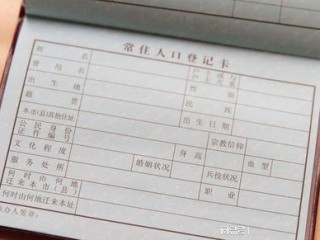 常住人口登记卡
姓 名
户主或与户主关系
曾用名
性 别
出生地
民 族
籍 贯
出生日期
本市(县)其他住址
宗教信仰
公民身份证件编号
身高
血型
文化程度
婚姻状况
兵役状况
服务处所
职 业
何时由何地迁来本市(县)
何时由何地迁来本址
承办人签章: